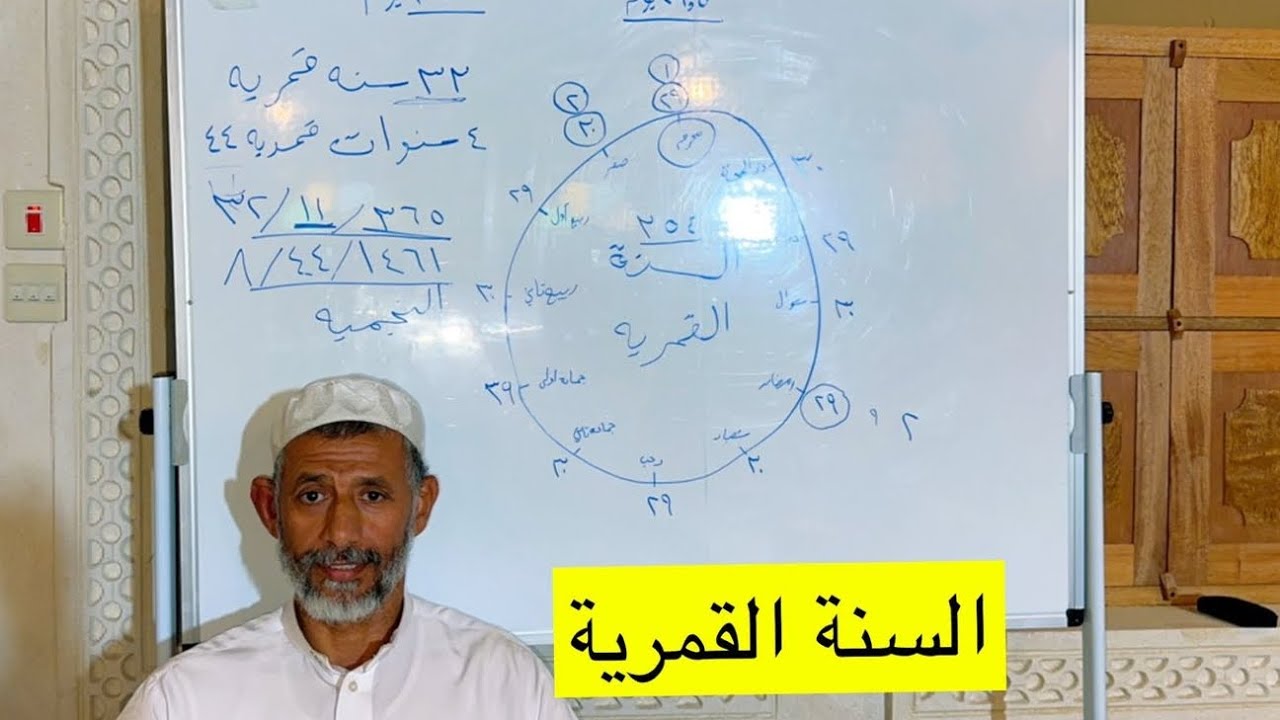 ٣٢ سنه قمريه
٤ سنوات قمريه ٤٤
٣٢/١١/٣٦٥
٨/٤٤/١٤٦١
النجميه
١
٢٩
محرم
٢
٣٠
صفر
٢٩
ربيع أول
٣٠
ربيع ثاني
٣٩
جماد اولى
٣٠
٢٩
رجب
٣٠
٢٩
رمضان
٢ ٩
٣٠
شوال
٢٩
٣٠
ذو الحجة
٣٥٤
السنة
القمرية
السنة القمرية